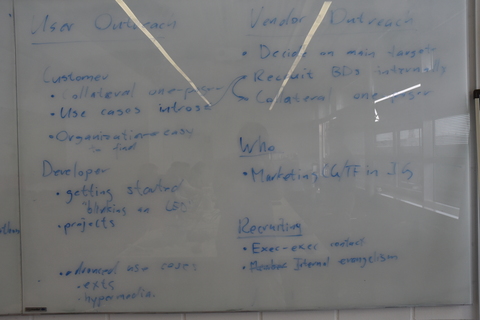 User Outreach
Customer
• Collateral one-pager
• Use cases intros
• Organization + easy
to find
Developer
• getting started
"blinking an LED"
• projects
• advanced use cases
• exts
• hypermedia
Vendor Outreach
• Decide on main targets
• Recruit BDs internally
• Collateral one-pager
Who
• Marketing CG/TF in IG
Recruiting
• Exec-exec contact
• Member Internal evangelism